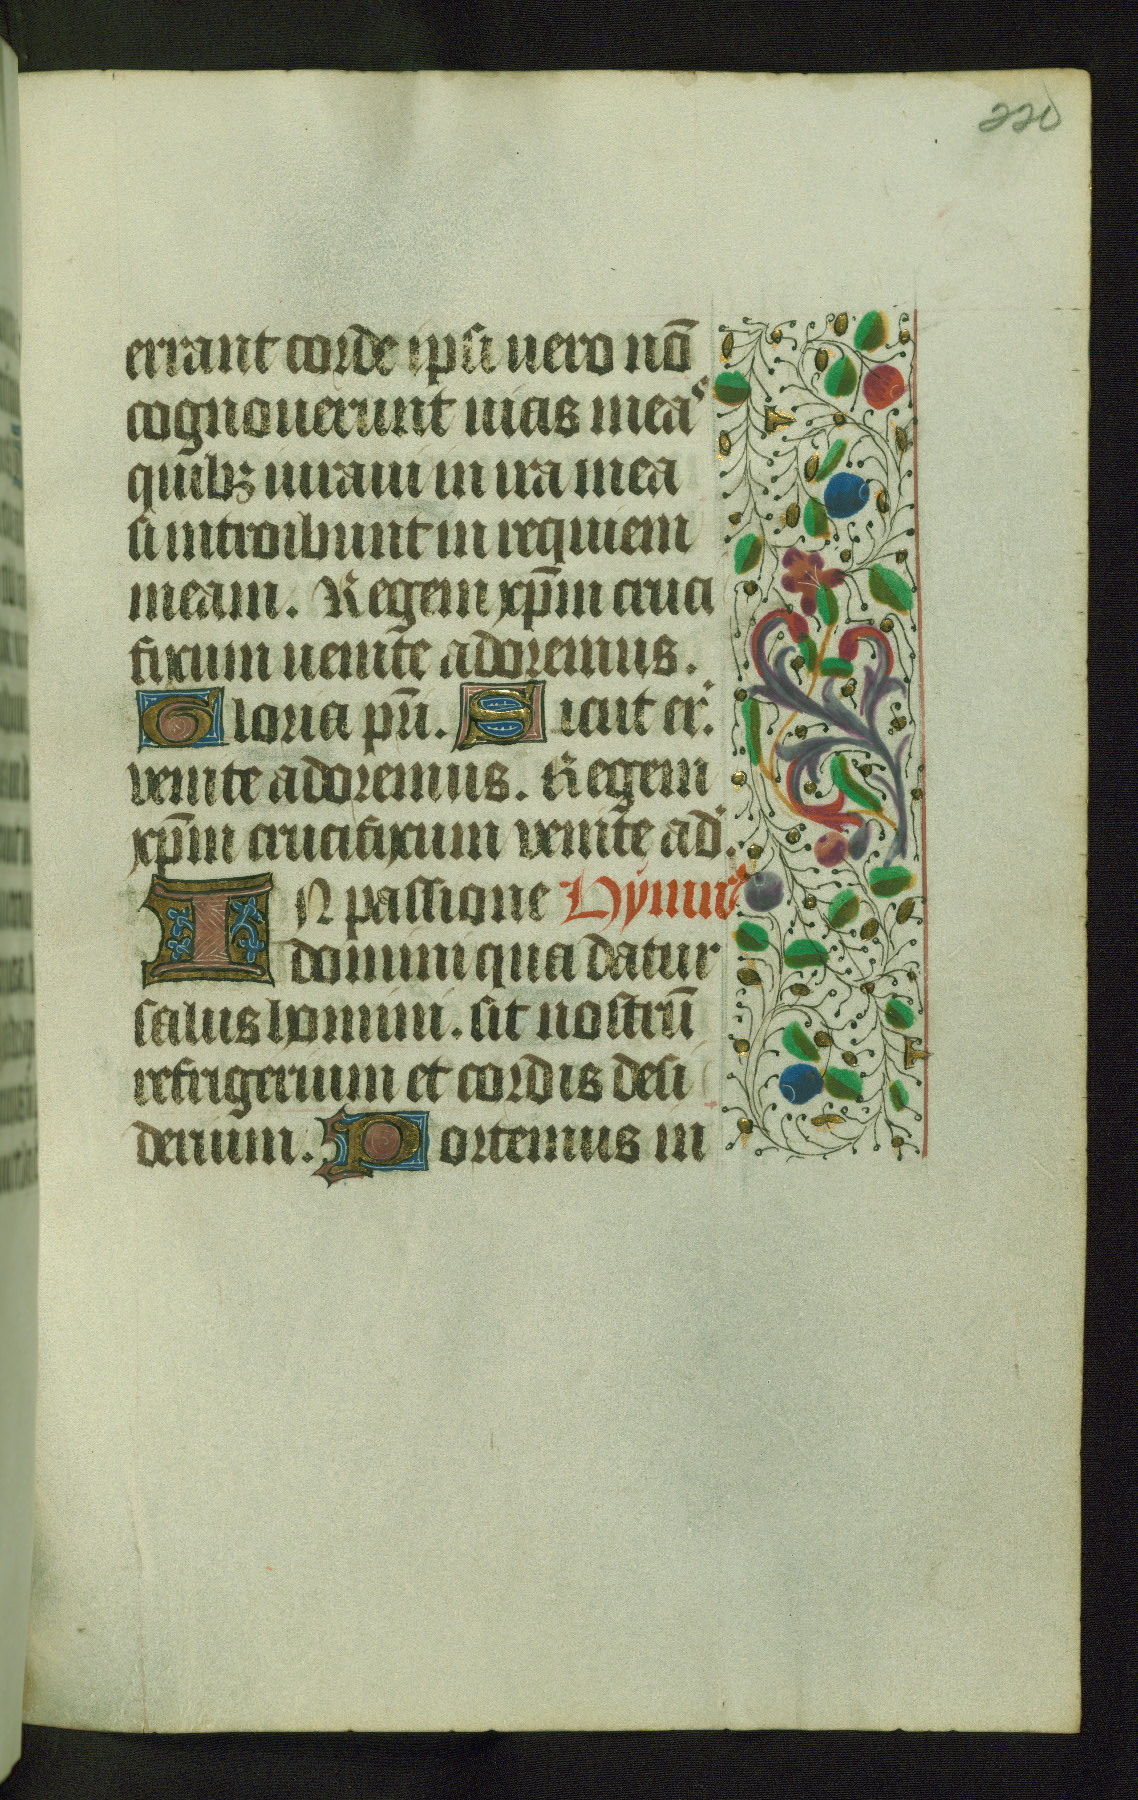 220
errant corde ipsi uero nō
cognouerunt uias meas
quibꝫ iuraui in ira mea
si introibunt in requiem
meam. Regem xp̄m cruci
fixum uenit̄e adoremus.
Gloria pr̄i. Sicut er̄.
venite adoremus. Regem
xp̄m crucifixum venit̄e ad̄.
IN passione Hymn9
domini qua datur
salus homini. sit nostrū
refrigerium et cordis desi
derium. Portemus in